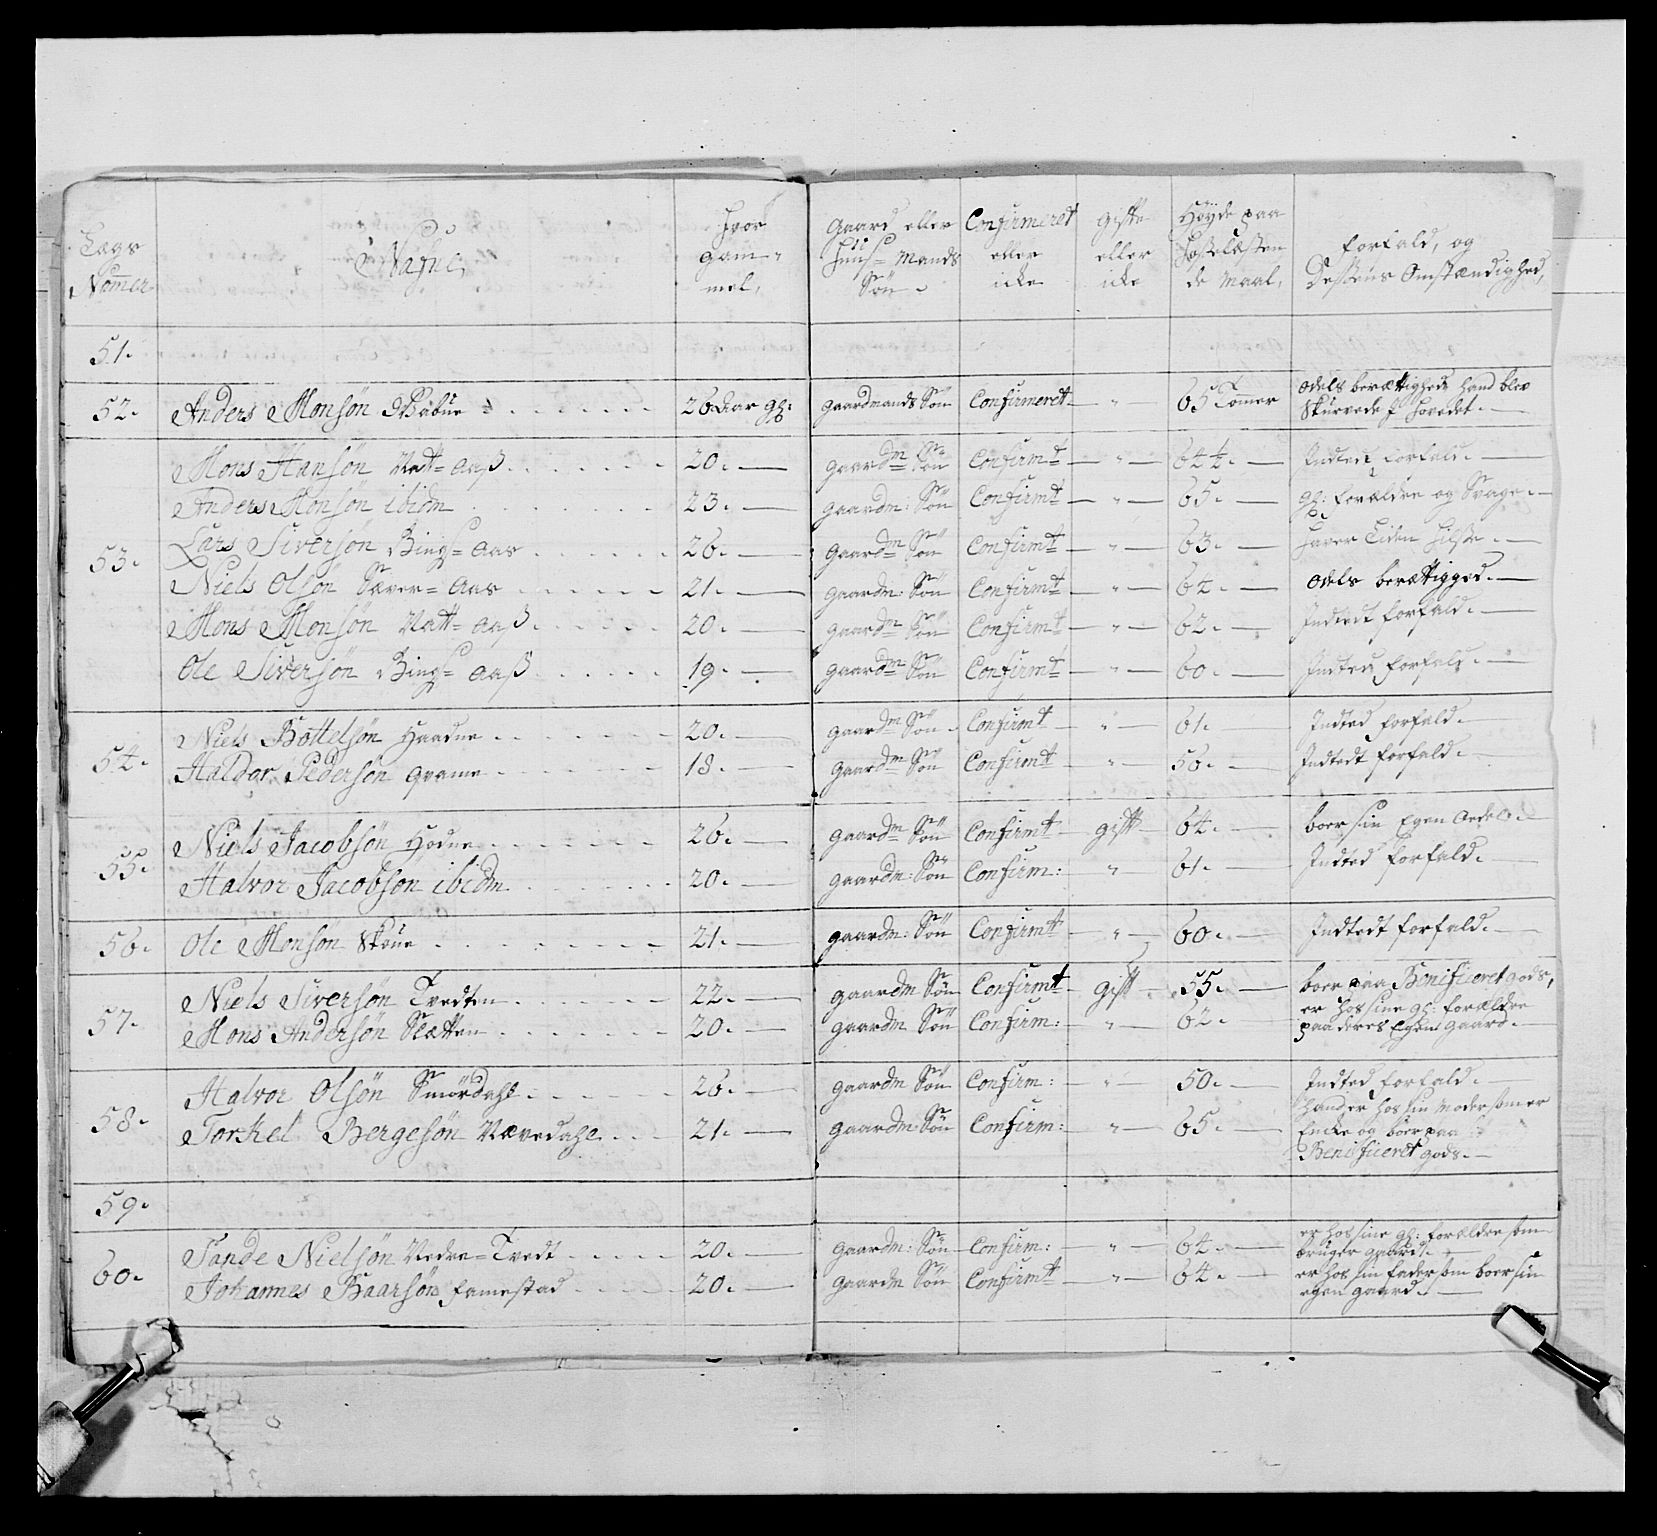 Lægs Nommer | Nafne, | Hvor gam- mel, | Gaard eller Huus- Mands Søn. | Confirmeret eller icke | Gifte eller icke | Høyde paa Hoselæsten de Maal, | Forfald, og Dessens Omstændighed,
51.
52. Anders Monsøn | 26 Aar gl: | Gaardmands Søn | Confirmeret | " | 65 Tommer | Odels berættighed hand blev
Skurvede i Hovedet.
53. Mons Hansøn Natt-Aaß | 20. | Gaardm Søn | Confirmt | " | 64½. | Indted Forfald.
Anders Monsøn ibidm | 23. | Gaardm: Søn | Confirmt | " | 65. | gl: Forældre og Svage.
Lars Siversøn Bings-Aas | 26. | Gaardm Søn | Confirmt | " | 63. | haver Liden Hilse.
Niels Olsøn Sæver-Aas | 21. | Gaardm: Søn | Confirmt | " | 64. | Odels berættigged.
Mons Monsøn Natt-Aaß. | 20. | Gaardm Søn | Confirmt | " | 62. | Indtedt forfald.
Ole Siversøn Bings-Aaß | 19. | Gaardm Søn | Confirmt | " | 60. | Indted forfald.
54. Niels Bottelsøn Haadne | 20. | Gaardm Søn | Confirmt | " | 61. | Indted forfald.
Haldor Pedersøn Grame | 18. | Gaardm Søn | Confirmt | " | 56. | Indtedt forfald.
55. Niels Jacobsøn Hodne | 26. | Gaardm Søn | Confirmt | gift | 64. | boer sin Egen
Halvor Jacobsøn ibidm | 20. | Gaardm: Søn | Confirm: | " | 61. | Indted forfald.
56. Ole Monsøn Skoue | 21. | Gaardm: Søn | Confirmt | " | 60. | Indtedt forfald.
57. Niels Siversøn Tvedten | 22. | Gaardm Søn | Confirmt | gift | 55. | boer paa Benificeret gods,
Mons Andersøn Slætten | 20. | Gaardm Søn | Confirm: | " | 62. | er hos sine gl: forældre
paa deres Egen gaard.
58. Halvor Olsøn Smørdahl | 26. | Gaardm Søn | Confirm: | " | 50. | Indted forfald.
Torkel Bergesøn Nævedahl | 21. | Gaardm Søn | Confirm: | " | 65. | hand er hos sin Moder som er
Encke og boer paa
Benificeret gods.
59.
60. Sande Nielsøn Nedre-Tvedt | 20. | Gaardm: Søn | Confirm: | " | 64. | er hos sine gl: forældre som
bruger gaard.
Johannes Baarsøn Famestad | 20. | Gaardm Søn | Confirmt | " | 64. | er hos sin fader som boer sin
egen gaard.